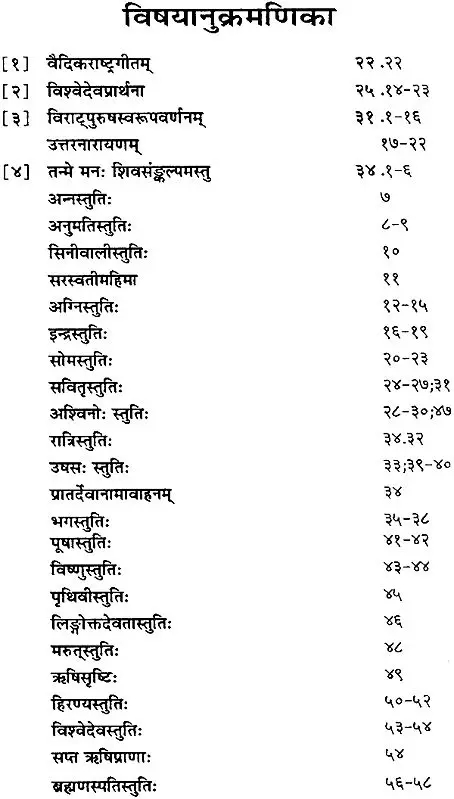 विषयानुक्रमणिका
[१] वैदिकराष्ट्रगीतम् २२.२२
[२] विश्वेदेवप्रार्थना २५.१४-२३
[३] विराट्पुरुषस्वरूपवर्णनम् ३१.१-१६
उत्तरनारायणम् १७-२२
[४] तन्मे मनः शिवसंङ्कल्पमस्तु ३४.१-६
अन्नस्तुतिः ७
अनुमतिस्तुतिः ८-९
सिनीवालीस्तुतिः १०
सरस्वतीमहिमा ११
अग्निस्तुतिः १२-१५
इन्द्रस्तुतिः १६-१९
सोमस्तुतिः २०-२३
सवितृस्तुतिः २४-२७;३१
अश्विनोः स्तुतिः २८-३०;४७
रात्रिस्तुतिः ३४.३२
उषसः स्तुतिः ३३;३९-४०
प्रातर्देवानामावाहनम् ३४
भगस्तुतिः ३५-३८
पूषास्तुतिः ४१-४२
विष्णुस्तुतिः ४३-४४
पृथिवीस्तुतिः ४५
लिङ्गोक्तदेवतास्तुतिः ४६
मरुत्स्तुतिः ४८
ऋषिसृष्टिः ४९
हिरण्यस्तुतिः ५०-५२
विश्वेदेवस्तुतिः ५३-५४
सप्त ऋषिप्राणाः ५४
ब्रह्मणस्पतिस्तुतिः ५६-५८